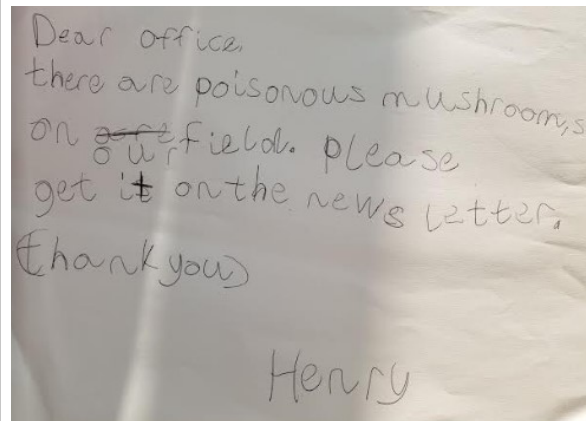 Dear office,
there are poisonous mushrooms
on our field. please
get it on the news letter.
(thank you)
Henry